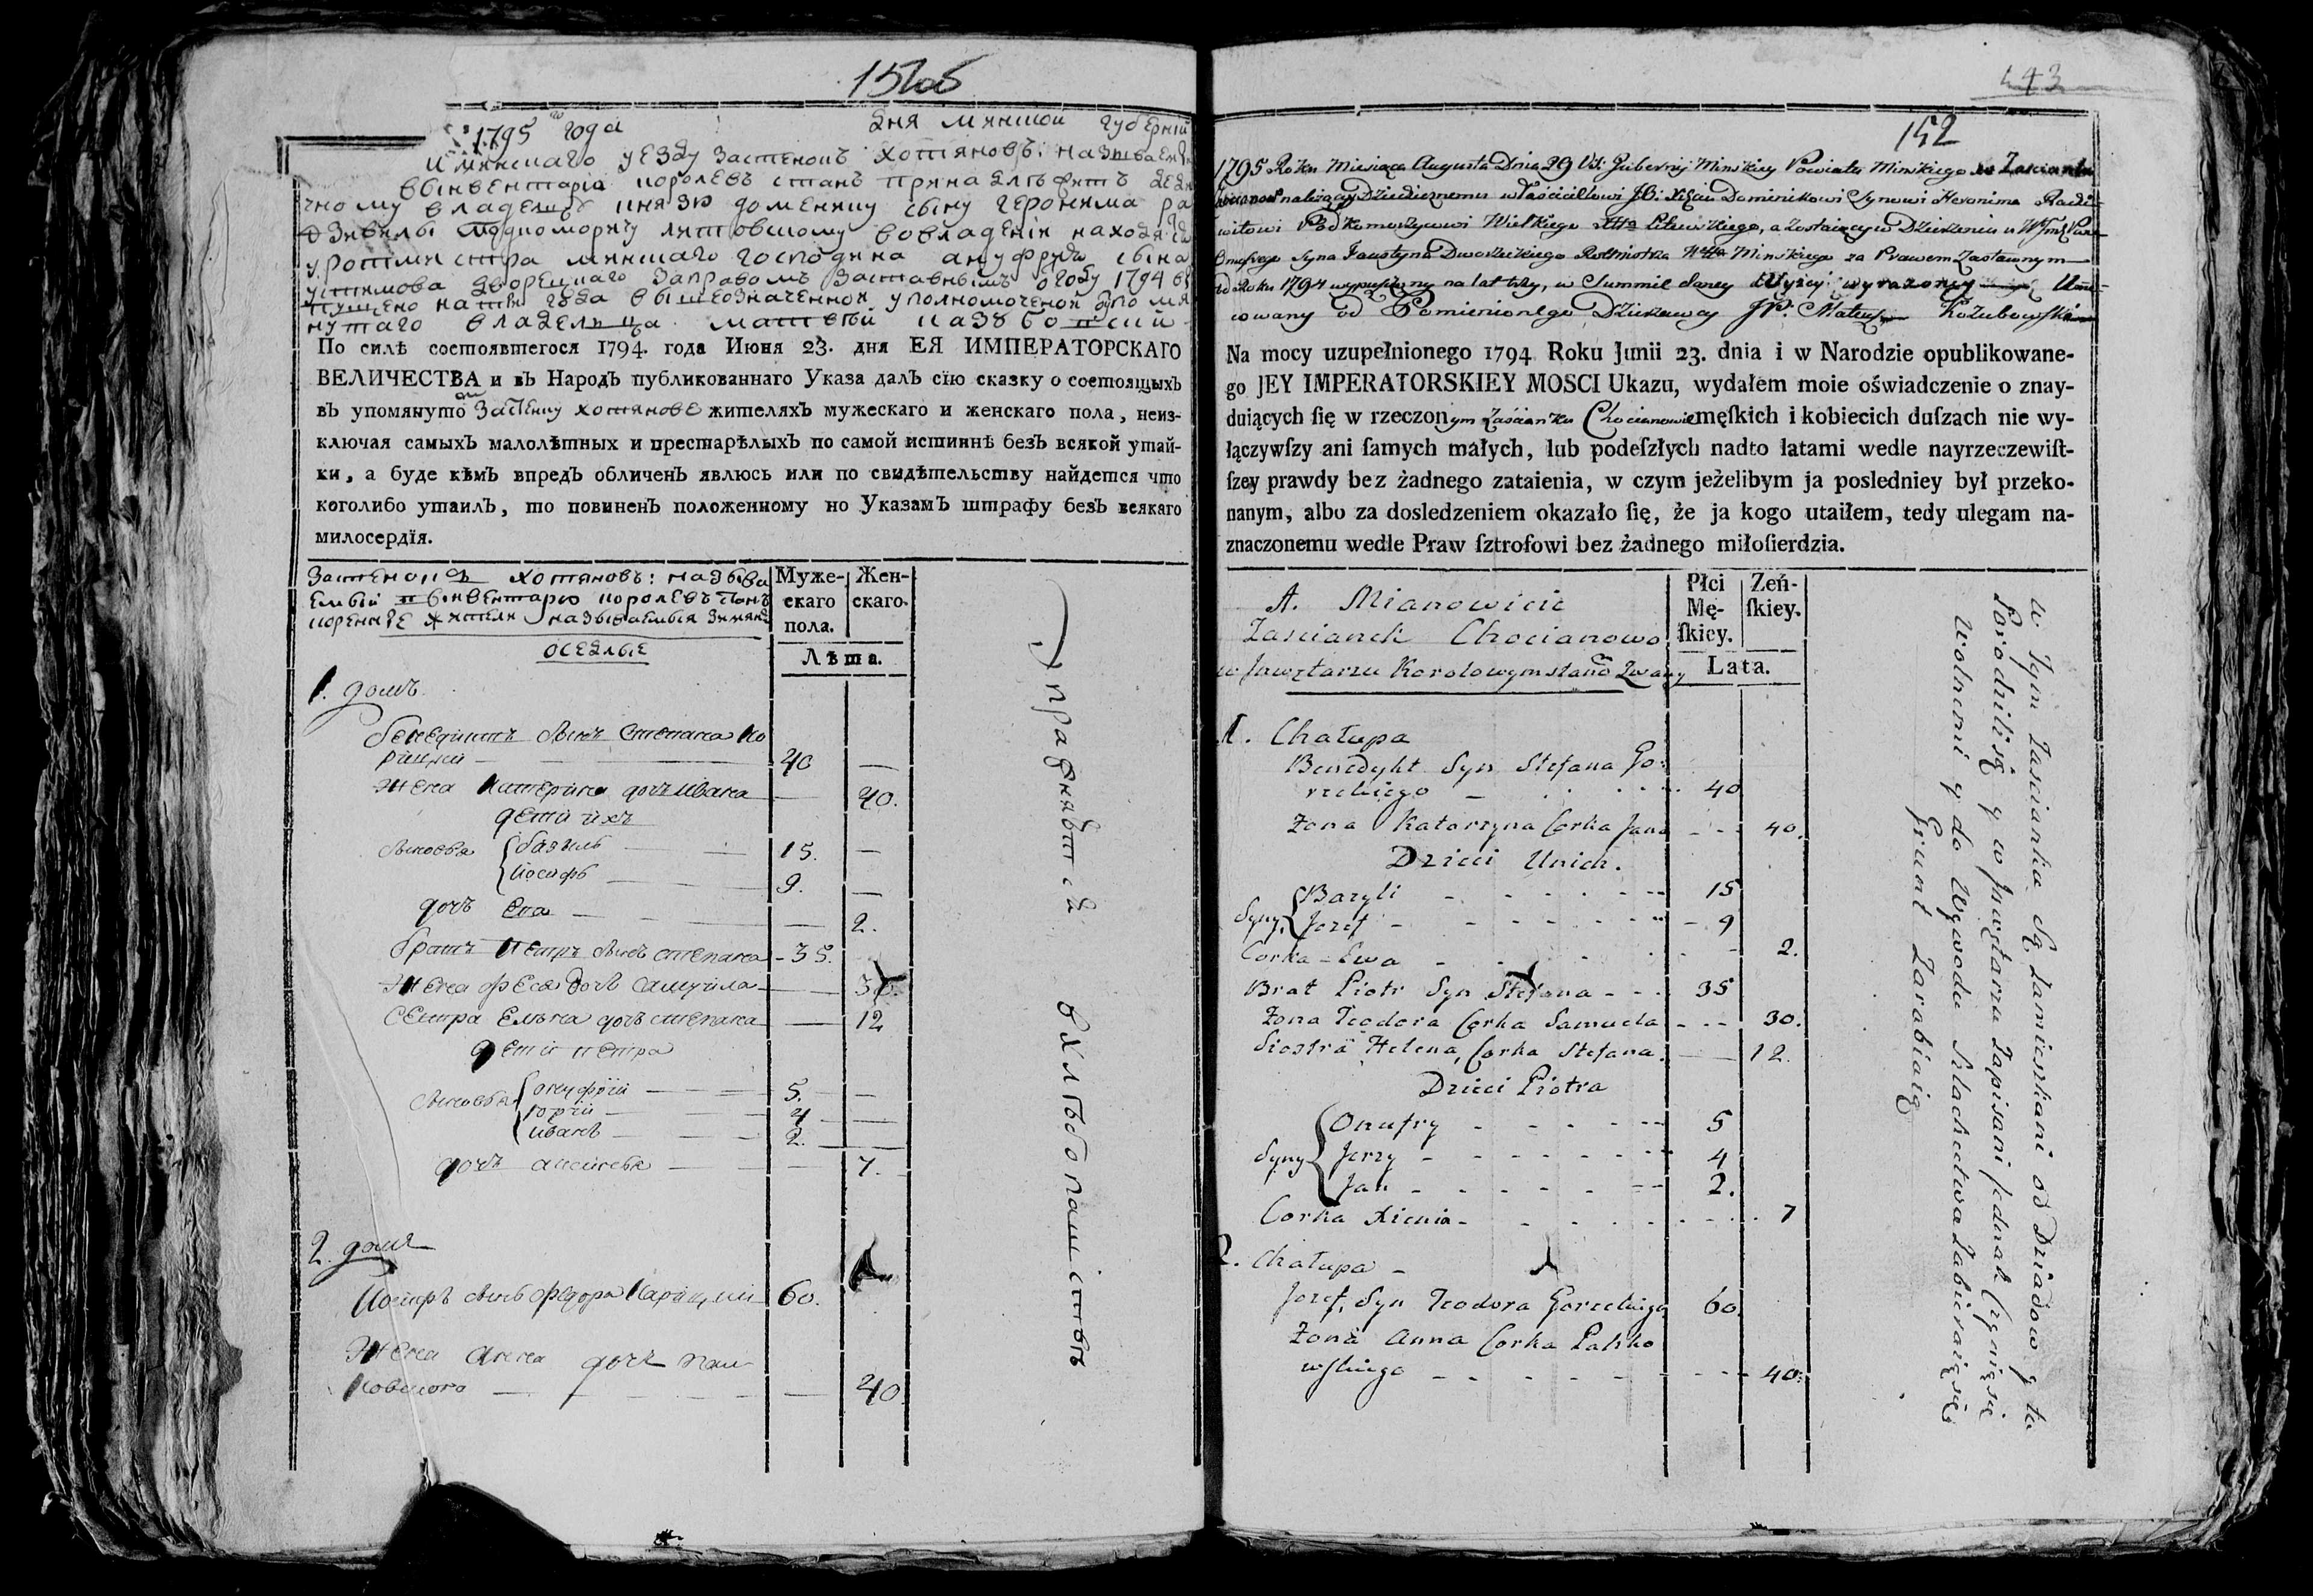 151об
1795 года дня минской губерніи
и минскаго уезду застенокъ хотяновъ: называемый
въ инвентаріа королевъ станъ принадлѣжитъ
чному владельцу князю доменику сыну геронима ра
дзивилы подкоморичу литовскому во владеніи находящ
у ротмистра минскаго господина ануфрія сына
устинова дворецкаго заправомъ заставнымъ ѿ году 1794
пущено на три года вышеозначенной уполномоченой ѿ помя
нутаго владельца матвѣй казубовский
По силѣ состоявшегося 1794. года Июня 23. дня ЕЯ ИМПЕРАТОРСКАГО
ВЕЛИЧЕСТВА и вЪ НародЪ публикованнаго Указа далЪ сїю сказку о состоящыхЪ
вЪ упомянуто застенку хотянове жителяхЪ мужескаго и женскаго пола, неиз-
ключая самыхЪ малолѣтных и престарѣлыхЪ по самой истиннѣ безЪ всякой утай-
ки, а буде кѣмЪ впредЪ обличенЪ явлюсь или по свидѣтельству найдется что
коголибо утаилЪ, то повиненЪ положенному по УказамЪ штрафу безЪ всякаго
милосердїя.
застенокъ хотяновъ: называ
емый инвентарю королевъ станъ
коренные жители называемыя
Муже-скаго пола. Жен-скаго.
оседлые
Лѣта.
1. домъ
бенедиктъ сынъ степана ко
рицкій — 40 —
жена катерина дочь ивана — 40.
дети ихъ
сыновья базыль — 15. —
иосифъ — 9. —
дочь ева — 2.
братъ петръ сынъ степана - 35.
жена феся дочь самуила — 30.
сестра елена дочь степана — 12
дети петра
сыновья онуфрій — 5. —
юрій — 4 —
иванъ — 2. —
дочь — 7.
2. домъ
иосифъ сынъ федора карицкій 60.
жена анна дочь пал
ковского — 40.
управняются хлѣбопашествомъ
443
152
1795 Roku Miesiąca Augusta Dnia 29 Gubernij Minskiey Powiatu Minskiego Zascianku
należący Dziedzicznemu właścicielowi JO: Xsięciu Dominikowi Synowi Heronima Radzi-
wiłowi Podkomorzycowi Wielkiego Litewskiego, a zostaiący w Dzierżeniu u
Onufrego Syna Faustyna Dworzeckiego Rotmistrza Minskiego za Prawem Zastawnym
od Roku 1794 wypuszczony na lat trzy, w Summie daney wyżey wyrażoney
cowany od Pomienionego Dzierżawcy JP: Mateusz Kozubowski
Na mocy uzupełnionego 1794 Roku Junii 23. dnia i w Narodzie opublikowane-
go JEY IMPERATORSKIEY MOSCI Ukazu, wydałem moie oświadczenie o znay-
duiących ſię w rzeczonym Zaścianku Chocianowie męſkich i kobiecich duſzach nie wy-
łączywſzy ani ſamych małych, lub podeſzłych nadto latami wedle nayrzeczewiſt-
ſzey prawdy bez żadnego zataienia, w czym jeżelibym ja posledniey był przeko-
nanym, albo za dosledzeniem okazało ſię, że ja kogo utaiłem, tedy ulegam na-
znaczonemu wedle Praw ſztrofowi bez żadnego miłoſierdzia.
A. Mianowicie
Zascianek Chocianowo
w Jnwętarzu Korolowym stano Zwany
Płci Mę-ſkiey. Zeń-ſkiey.
Lata.
1. Chałupa
Benedykt Syn Stefana Go:
rzelkiego - 40
Żona Katarzyna Corka Jana - - - 40.
Dzieci Unich.
Syny Bazyli - 15
Jozef - 9
Corka - Ewa - 2.
Brat Piotr Syn Stefana - - - 35
Żona Teodora Corka Samuela - - - 30.
Siostra Helena, Corka Stefana. — 12.
Dzieci Piotra
Syny Onufry - 5
Jerzy - 4
Jan - 2.
Corka Xienia - 7
2. Chałupa -
Jozef, Syn Teodora Gorzelkiego 60.
Żona Anna Corka Palko
wſkiego - 40.
w tym Zascianku są Zamieszkani od Dziadow y tu
Porodzili się y w Jnwętarzu Zapisani jednak Czynią się
Wolnemi y do Wywodu Szlachectwa Zabieraią się
Grunt Zarabiaią